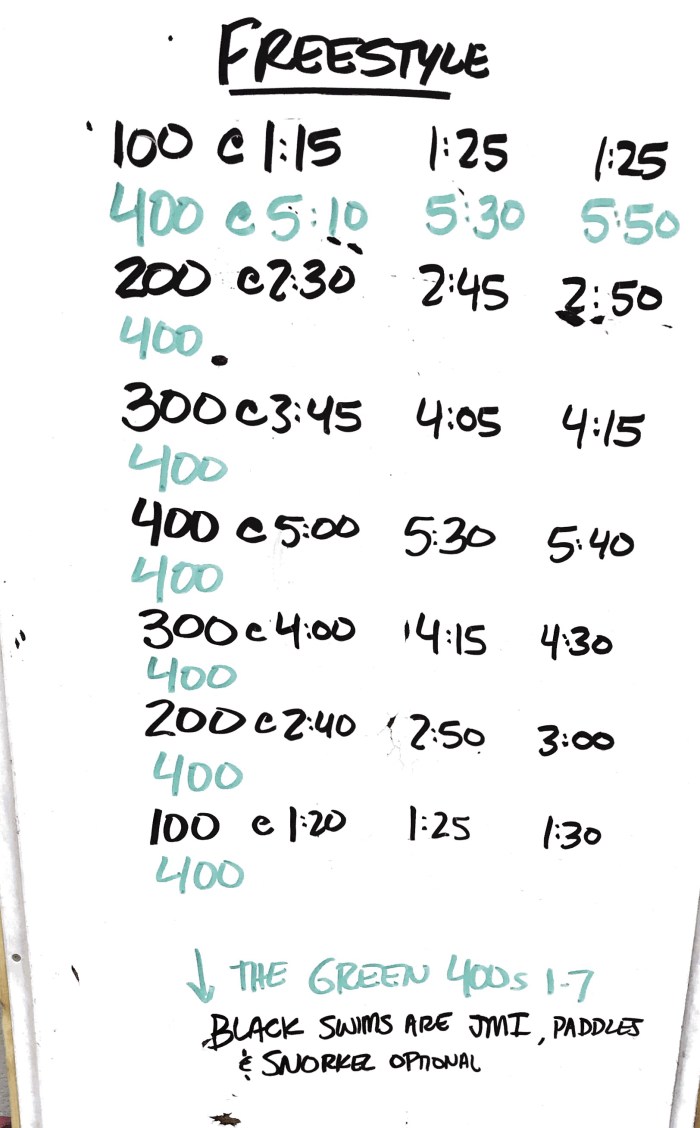 FREESTYLE
100 @ 1:15 1:25 1:25
400 @ 5:10 5:30 5:50
200 @ 2:30 2:45 2:50
400
300 @ 3:45 4:05 4:15
400
400 @ 5:00 5:30 5:40
400
300 @ 4:00 4:15 4:30
400
200 @ 2:40 2:50 3:00
400
100 @ 1:20 1:25 1:30
400
↓ THE GREEN 400s 1-7
BLACK SWIMS ARE JMI, PADDLES
& SNORKEL OPTIONAL